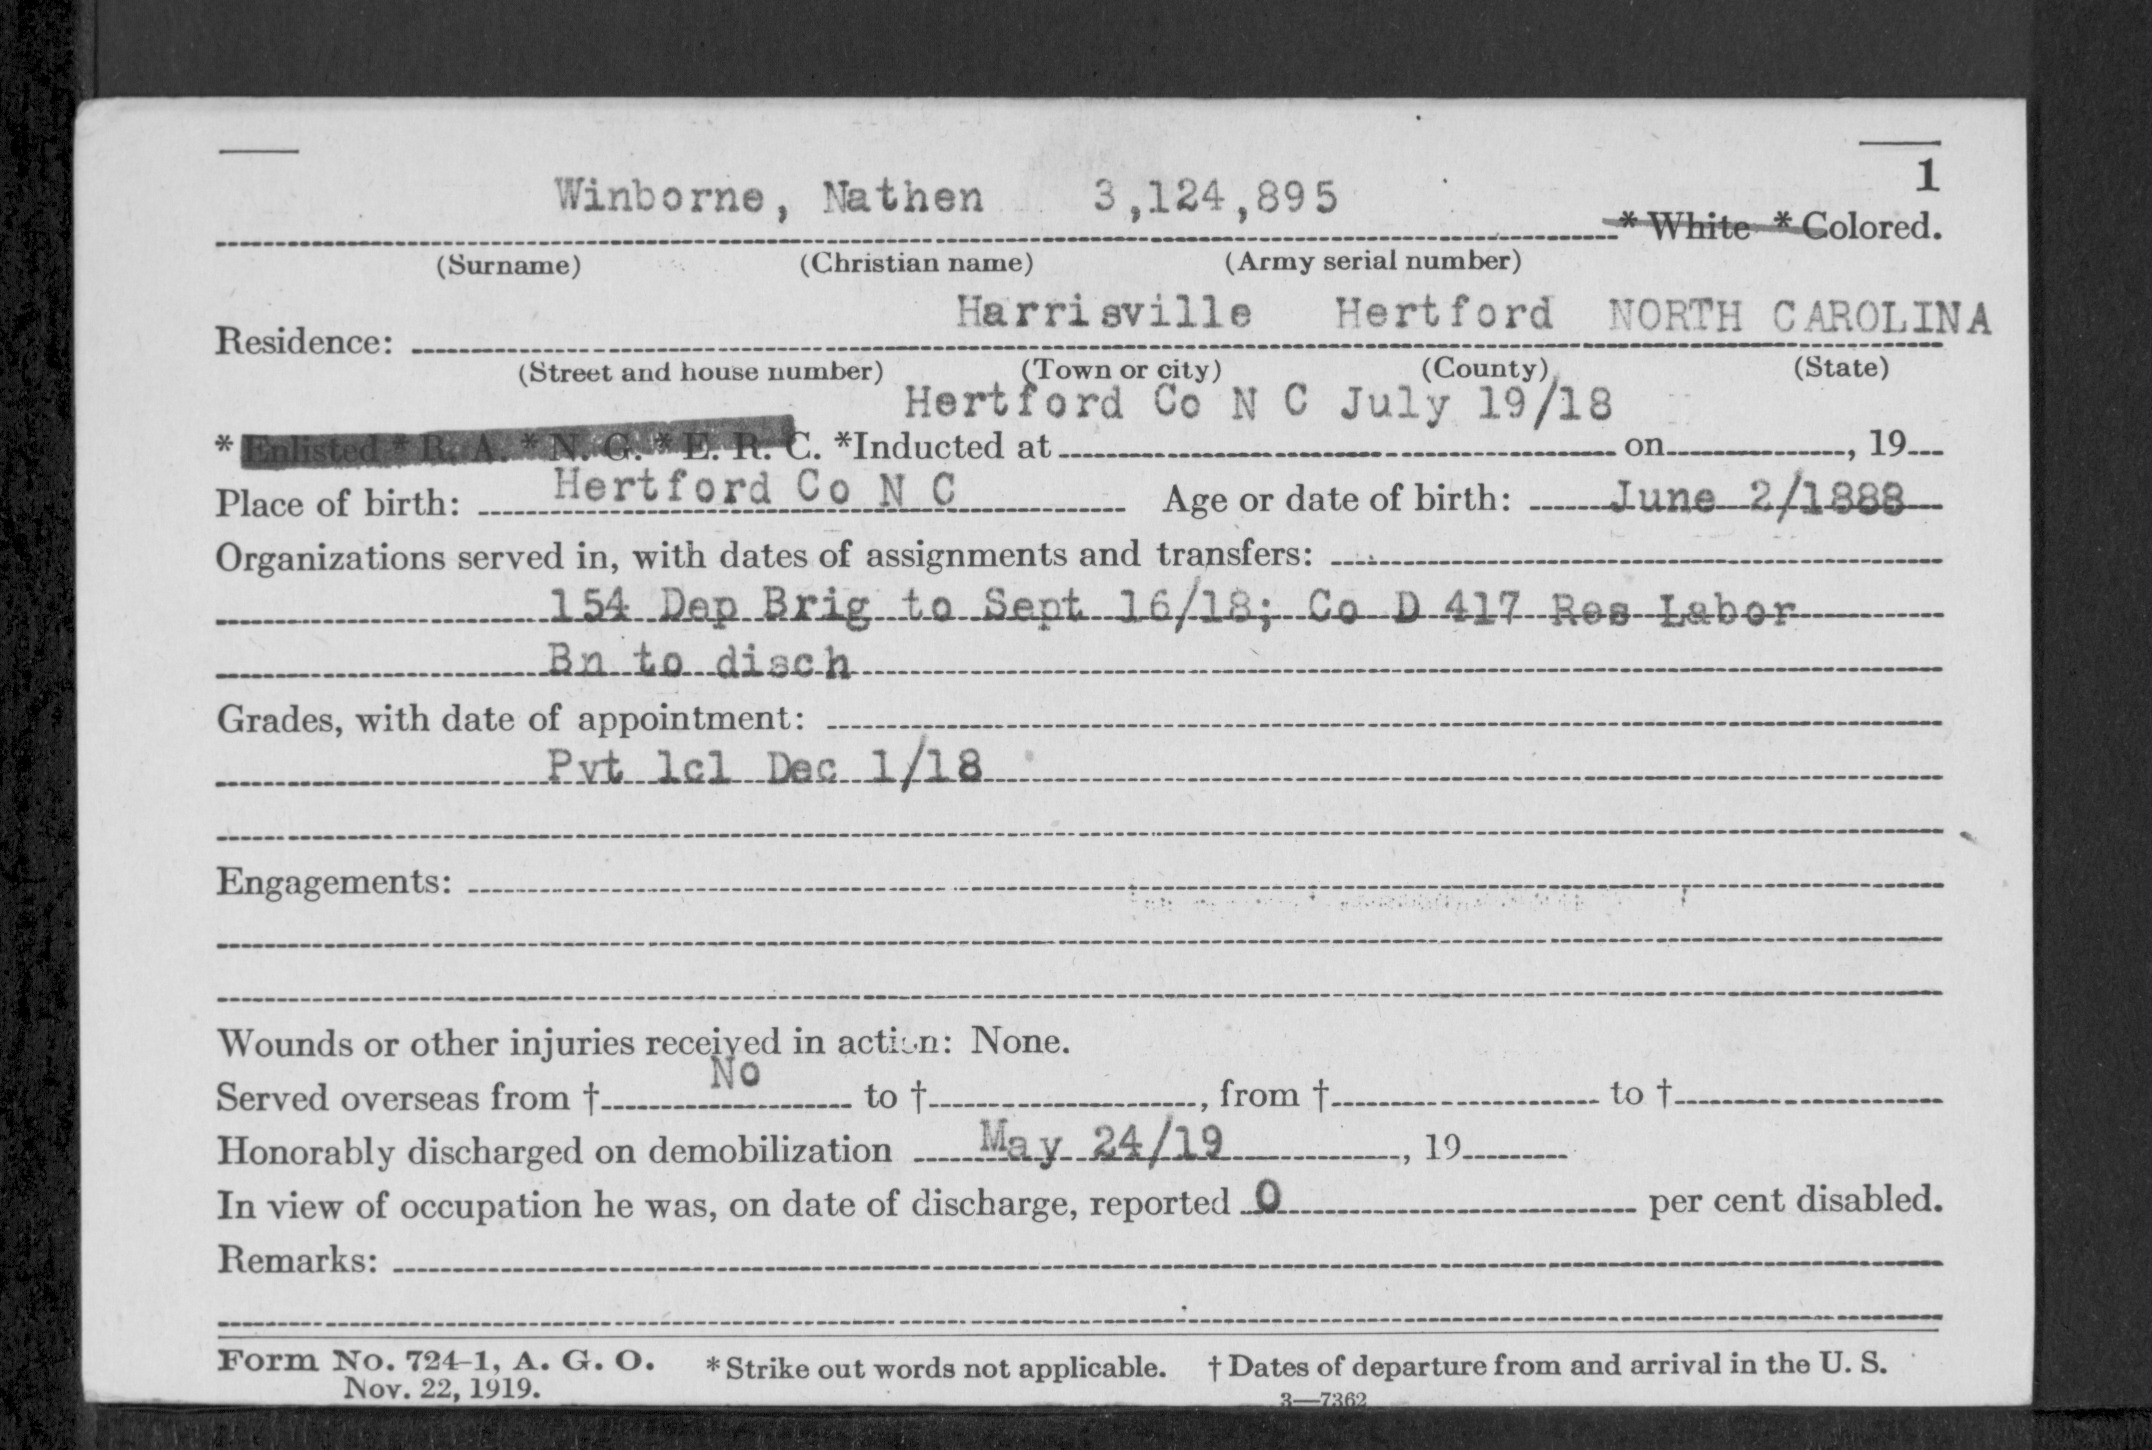 1
Winborne, Nathen 3,124,895 * White * Colored.
(Surname) (Christian name) (Army serial number)
Harrisville Hertford NORTH CAROLINA
Residence:
(Street and house number) (Town or city) (County) (State)
Hertford Co N C July 19/18
* Enlisted * R. A. * N. G. * E. R. C. *Inducted at on , 19
Place of birth: Hertford Co N C Age or date of birth: June 2/1888
Organizations served in, with dates of assignments and transfers:
154 Dep Brig to Sept 16/18; Co D 417 Res Labor
Bn to disch
Grades, with date of appointment:
Pvt 1cl Dec 1/18
Engagements:
Wounds or other injuries received in action: None.
Served overseas from † No to † , from † to †
Honorably discharged on demobilization May 24/19 , 19
In view of occupation he was, on date of discharge, reported 0 per cent disabled.
Remarks:
Form No. 724-1, A. G. O. * Strike out words not applicable. † Dates of departure from and arrival in the U. S.
Nov. 22, 1919. 3—7362